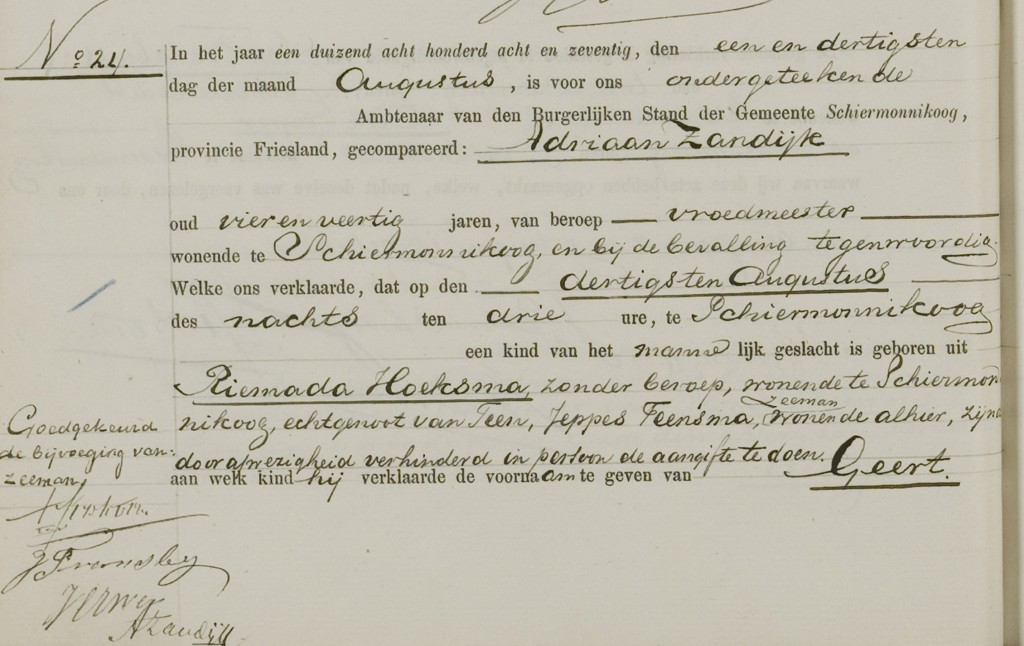 No 24.
In het jaar een duizend acht honderd acht en zeventig, den een en dertigsten
dag der maand Augustus, is voor ons ondergeteekende
Ambtenaar van den Burgerlijken Stand der Gemeente Schiermonnikoog,
provincie Friesland, gecompareerd: Adriaan Zandijk
oud vier en veertig jaren, van beroep vroedmeester
wonende te Schiermonnikoog, en bij de bevalling tegenwoordig.
Welke ons verklaarde, dat op den dertigsten Augustus
des nachts ten drie ure, te Schiermonnikoog
een kind van het mannelijk geslacht is geboren uit
Riemada Hoeksma, zonder beroep, wonende te Schiermon
zeeman
nikoog, echtgenoot van Teen, Jeppes Teensma, wonende alhier, zijnde
door afwezigheid verhinderd in persoon de aangifte te doen.
aan welk kind hij verklaarde de voornaam te geven van Geert.
Goedgekeurd
de bijvoeging van:
zeeman,
A Zandijk